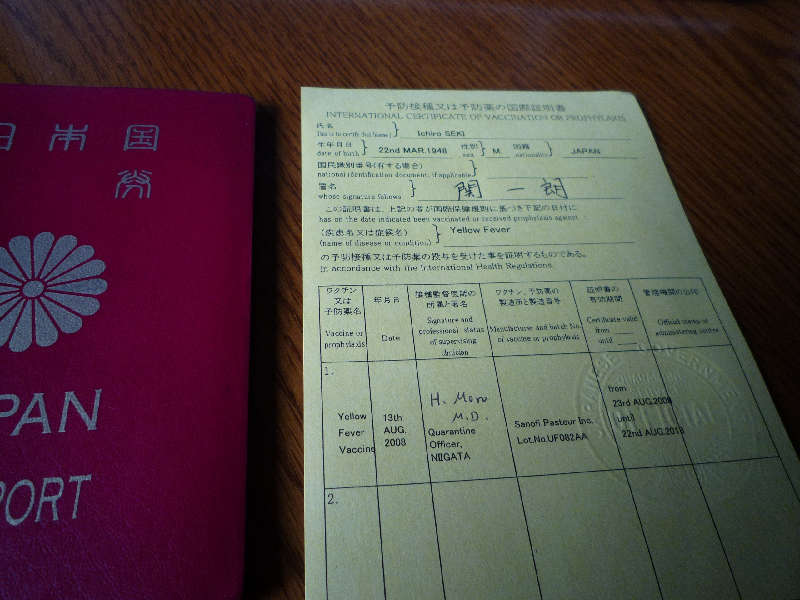 日本国
券
PAN
PORT
予防接種又は予防薬の国際証明書
INTERNATIONAL CERTIFICATE OF VACCINATION OR PROPHYLAXIS
氏名
This is to certify that (name) } Ichiro SEKI
生年月日 性別 国籍
date of birth } 22nd MAR.1948 sex } M nationality } JAPAN
国民識別番号(有する場合)
national identification document, if applicable }
署名
whose signature follows } 関 一朗
この証明書は、上記の者が国際保健規則に基づき下記の日付に
has on the date indicated been vaccinated or received prophylaxis against
(疾患名又は症候名)
(name of disease or condition) } Yellow Fever
の予防接種又は予防薬の投与を受けた事を証明するものである。
in accordance with the International Health Regulations.
ワクチン又は予防薬名
Vaccine or prophylaxis
年月日
Date
接種監督医師の所属と署名
Signature and professional status of supervising clinician
ワクチン、予防薬の製造所と製造番号
Manufacturer and batch No. of vaccine or prophylaxis
証明書の有効期間
Certificate valid from
until
管理機関の公印
Official stamp of administering centre
1.
Yellow Fever Vaccine
13th AUG. 2008
M.D.
Quarantine Officer, NIIGATA
Sanofi Pasteur Inc.
Lot.No.UF082AA
from
23rd AUG.2008
until
22nd AUG.2018
2.